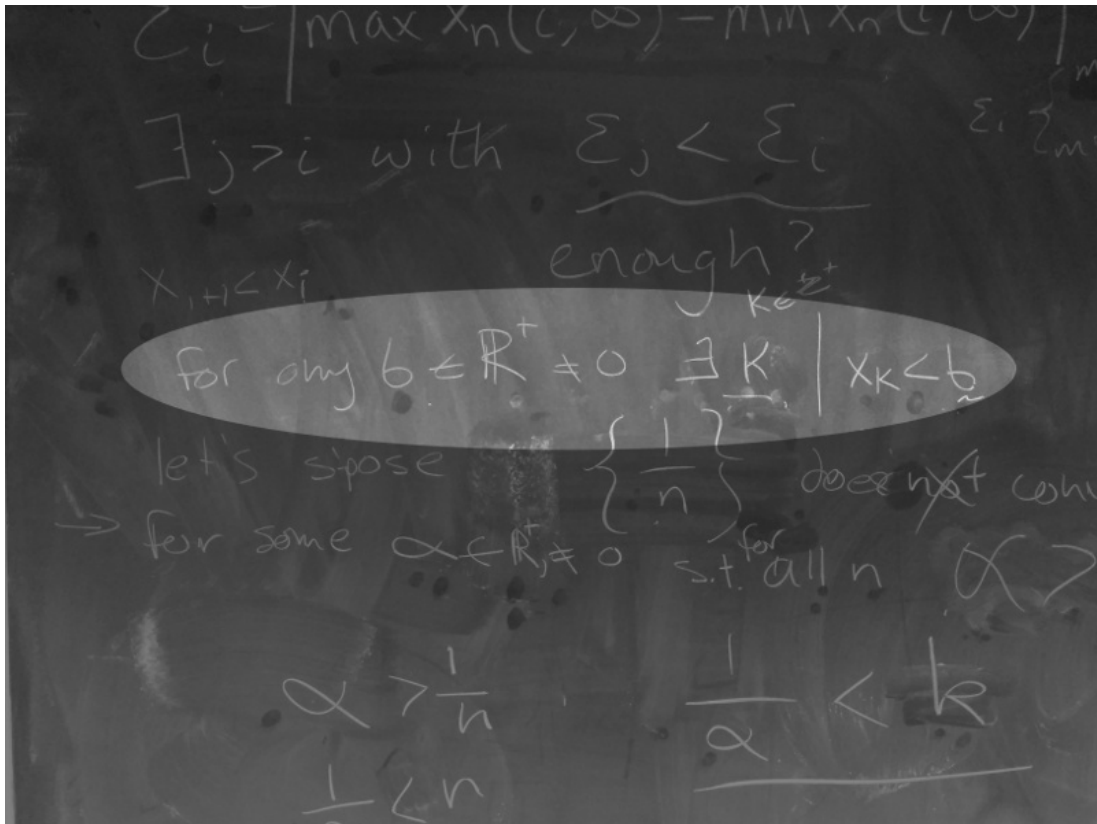 Σi = | max xn(i, ∞) − min xn(i, ∞) |
∃ j > i with Σj < Σi
Σi { m
enough?
xi+1 < xi
k ∈ Z+
for any b ∈ ℝ+ ≠ 0 ∃ K | xK < b
let's s'pose { 1/n } does not conv
→ for some α ∈ ℝ+, ≠ 0 s.t. for all n α >
α > 1/n 1/α < k
< n